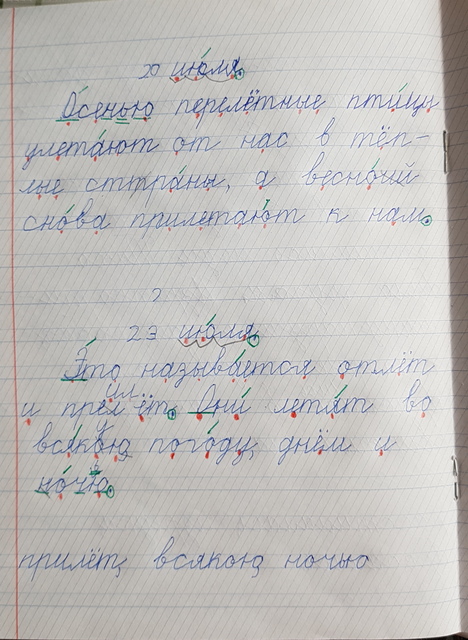 20 июля.
Осенью перелётные птицы
улетают от нас в тёп-
лые сттраны, а весной
снова прилетают к нам.
23 июля.
Это называется отлёт
и прелёт. Они летят во
всякою погоду, днём и
ночью.
прилёт, всякою ночью